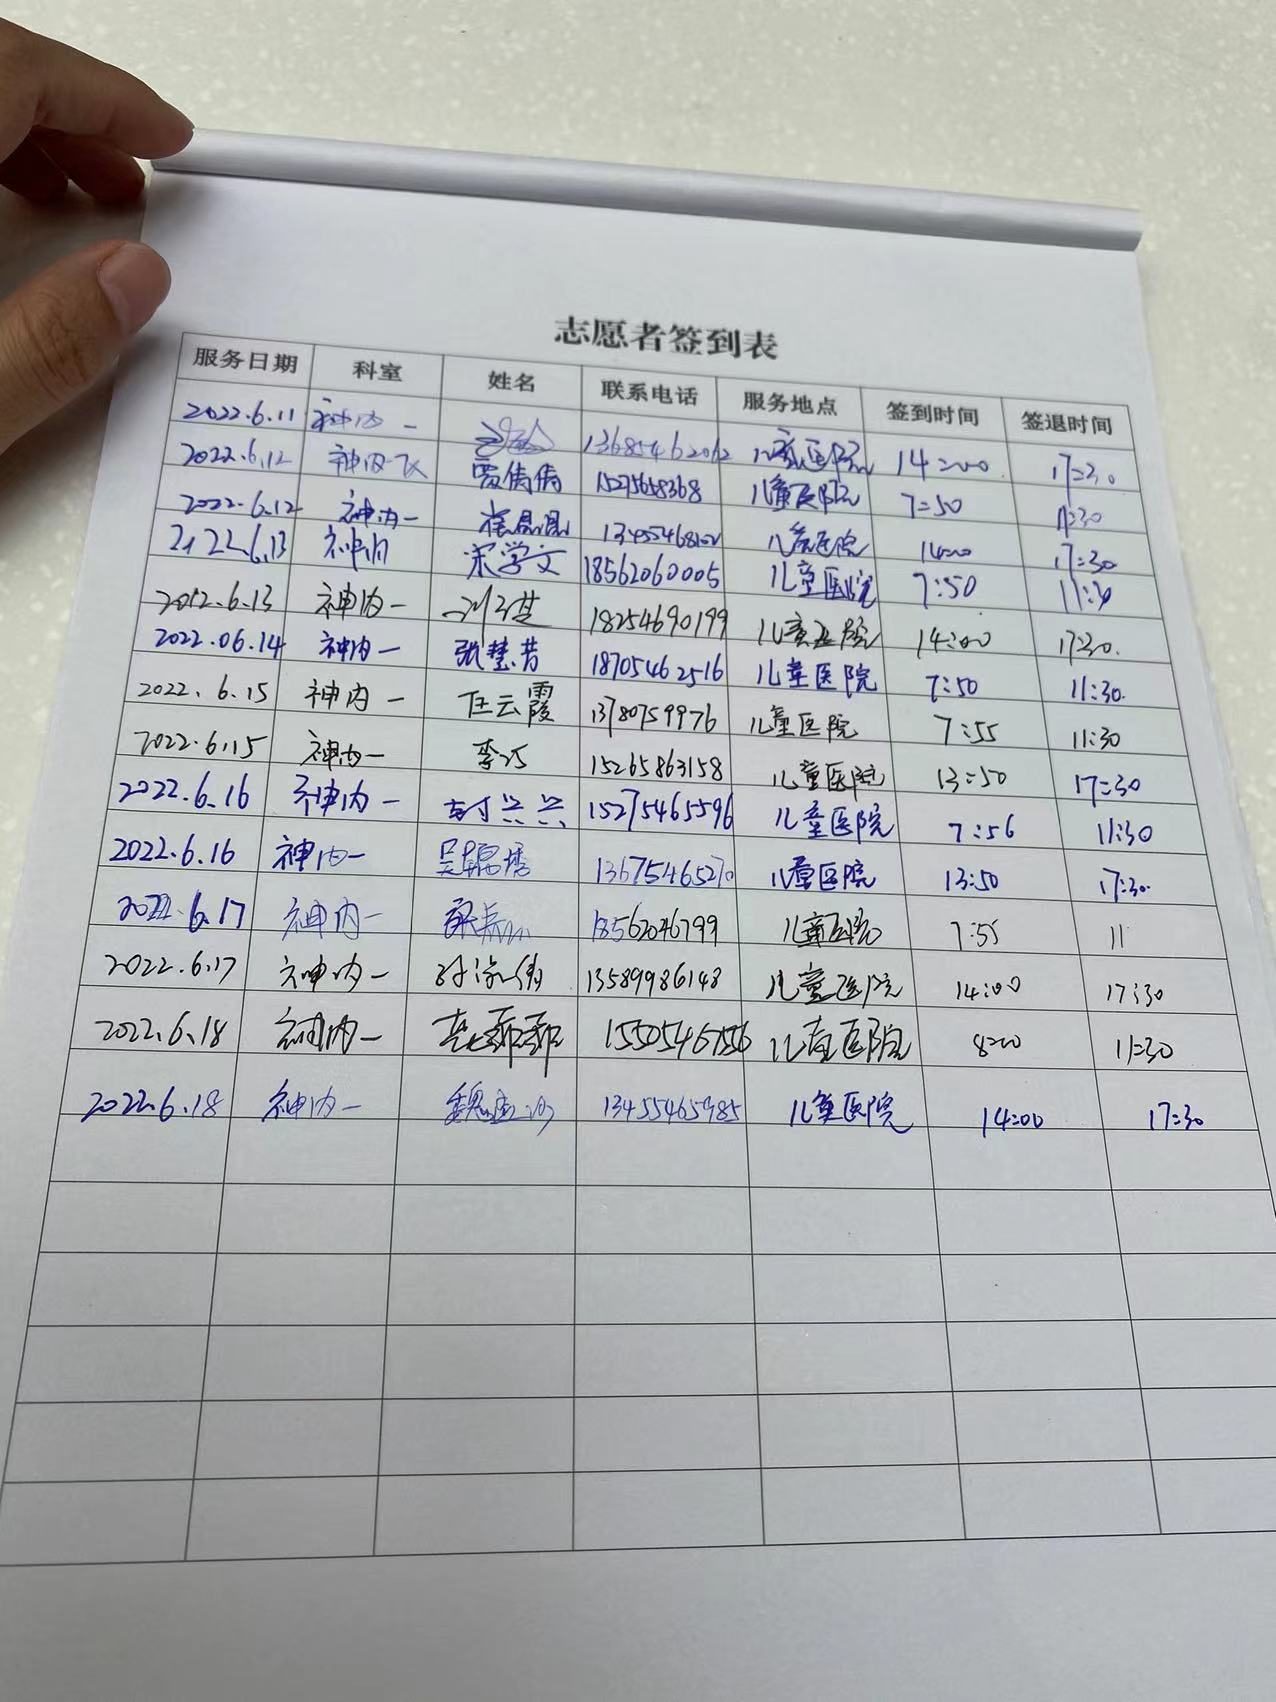 志愿者签到表
服务日期 科室 姓名 联系电话 服务地点 签到时间 签退时间
2022.6.11 神内一 13685462062 儿童医院 14:00 17:30
2022.6.12 神内一 贾倩倩 15275658368 儿童医院 7:50 11:30
2022.6.12 神内一 儿童医院 14:00 17:30
2022.6.13 神内 宋学文 18562060005 儿童医院 7:50 11:30
2012.6.13 神内一 18254690199 儿童医院 14:00 17:30.
2022.06.14 神内一 张慧芳 18705462516 儿童医院 7:50 11:30.
2022.6.15 神内一 任云霞 13780759976 儿童医院 7:55 11:30
2022.6.15 神内一 李巧 15265863158 儿童医院 13:50 17:30
2022.6.16 神内一 15275465596 儿童医院 7:56 11:30
2022.6.16 神内一 13675465270 儿童医院 13:50 17:30.
2022.6.17 神内一 18562046799 儿童医院 7:55 11
2022.6.17 神内一 13589986148 儿童医院 14:00 17:30
2022.6.18 神内一 15505467156 儿童医院 8:00 11:30
2022.6.18 神内一 13455465985 儿童医院 14:00 17:30